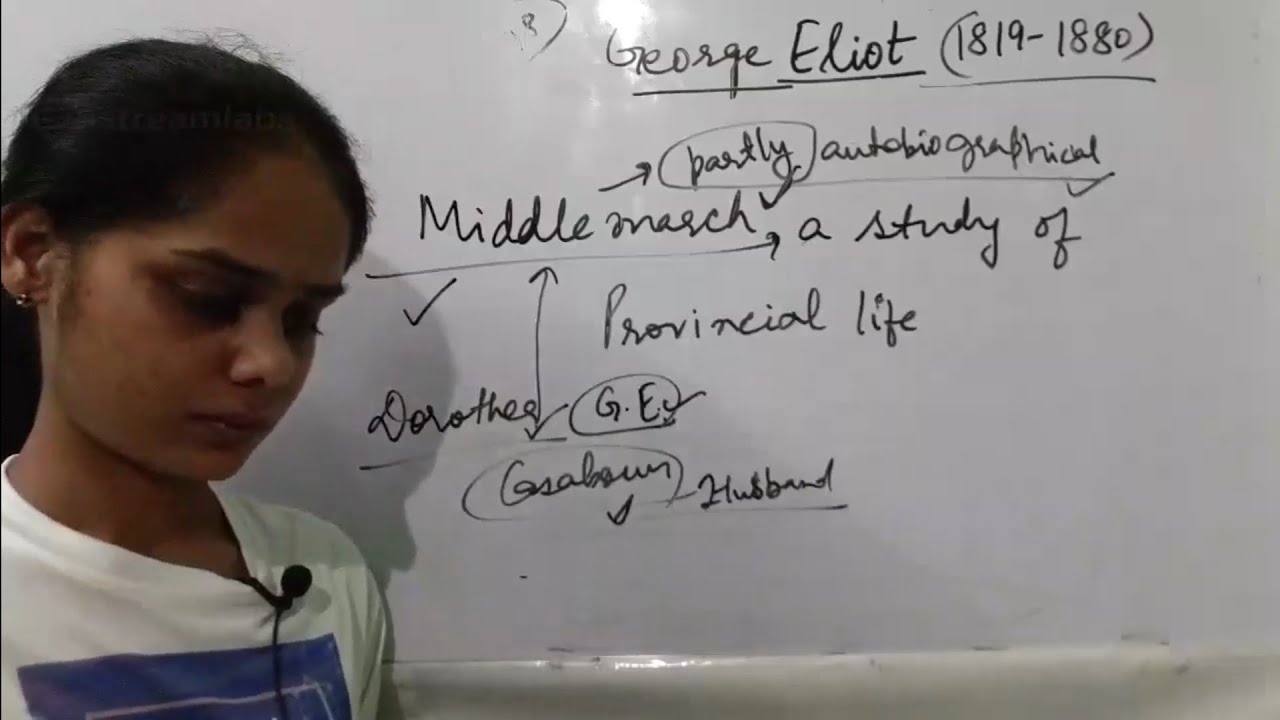 George Eliot (1819-1880)
→ (partly) autobiographical
Middlemarch, a study of
Provincial life
Dorothea G.E.
Husband